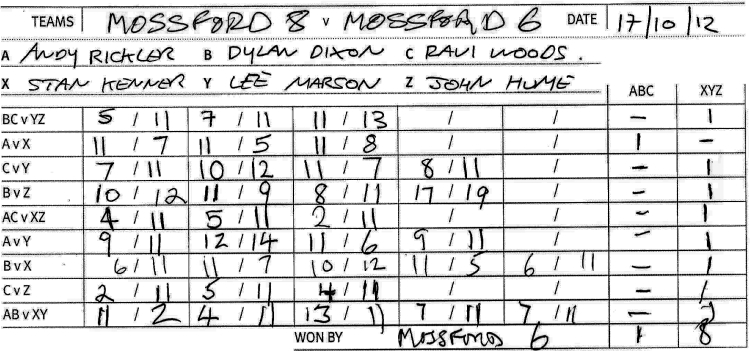 TEAMS MOSSFORD 8 v MOSSFORD 6 DATE 17/10/12
A ANDY RICHLER B DYLAN DIXON C RAVI WOODS.
X STAN KENNER Y LEE MARSON Z JOHN HUME ABC XYZ
BC v YZ 5 / 11 7 / 11 11 / 13 / / – 1
A v X 11 / 7 11 / 5 11 / 8 / / 1 –
C v Y 7 / 11 10 / 12 11 / 7 8 / 11 / – 1
B v Z 10 / 12 11 / 9 8 / 11 17 / 19 / – 1
AC v XZ 4 / 11 5 / 11 2 / 11 / / – 1
A v Y 9 / 11 12 / 14 11 / 6 9 / 11 / – 1
B v X 6 / 11 11 / 7 10 / 12 11 / 5 6 / 11 – 1
C v Z 2 / 11 5 / 11 4 / 11 / / – 1
AB v XY 11 / 2 4 / 11 13 / 11 7 / 11 7 / 11 –
WON BY MOSSFORD 6 1 8